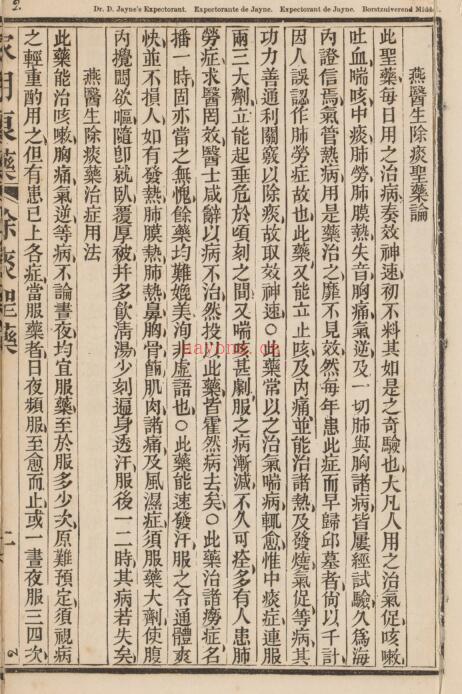 2.
Dr. D. Jayne's Expectorant. Expectorante de Jayne. Expectorant de Jayne. Borstzuiverend Midd
燕醫生除痰聖藥論
此聖藥每日用之治病奏效神速初不料其如是之奇驗也大凡人用之治氣促咳嗽
吐血喘咳中痰肺勞肺膜熱失音胸痛氣逆及一切肺與胸諸病皆屢經試驗久爲海
內證信焉氣管熱病用是藥治之靡不見效然每年患此症而早歸邱墓者尙以千計
因人誤認作肺勞症故也此藥又能立止咳及內痛並能治諸熱及發燒氣促等病其
功力善通利關竅以除痰故取效神速○此藥常以之治氣喘病輒愈惟中痰症連服
兩三大劑立能起垂危於頃刻之間又喘哮甚劇服之病漸減不久可痊多有人患肺
勞症求醫罔效醫士咸辭以病不治然投以此藥皆霍然病去矣○此藥治諸癆症名
播一時固亦當之無愧餘藥均難媲美洵非虛語也○此藥能速發汗服之令通體爽
快並不損人如有發熱肺膜熱肺熱鼻胸骨節肌肉諸痛及風濕症須服藥大劑使腹
內攪悶欲嘔隨卽就臥覆厚被幷多飮淸湯少刻遍身透汗服後一二時其病若失矣
燕醫生除痰藥治症用法
此藥能治咳嗽胸痛氣逆等病不論晝夜均宜服藥至於服多少次原難預定須視病
之輕重酌用之但有患已上各症當服藥者日夜頻服至愈而止或一晝夜服三四次
除痰聖藥
二
2